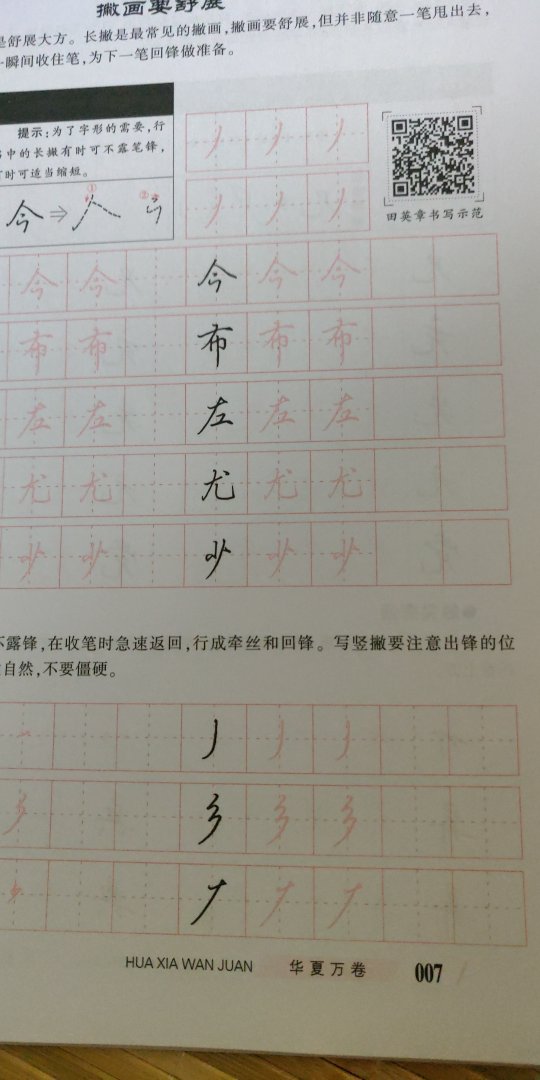 撇画要舒展
是舒展大方。长撇是最常见的撇画,撇画要舒展,但并非随意一笔甩出去,
一瞬间收住笔,为下一笔回锋做准备。
提示:为了字形的需要,行
书中的长撇有时可不露笔锋,
有时可适当缩短。
今⇒ ① ②
田英章书写示范
今 今 今 今 今
布 布 布 布 布
左 左 左 左 左
尤 尤 尤 尤 尤
少 少 少 少 少
不露锋,在收笔时急速返回,行成牵丝和回锋。写竖撇要注意出锋的位
自然,不要僵硬。
丿 丿 丿
乡 乡 乡 乡
HUA XIA WAN JUAN 华夏万卷 007